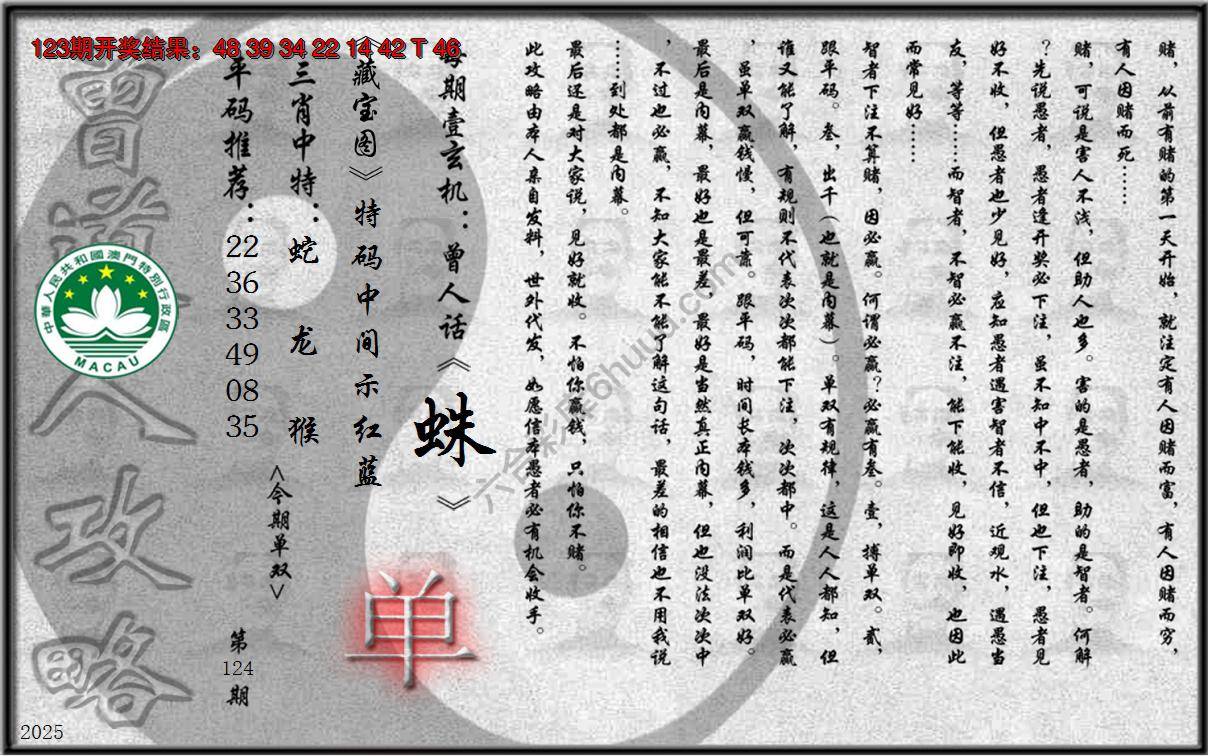 123期开奖结果：48 39 34 22 14 42 T 46
赌，从前有赌的第一天开始，就注定有人因赌而富，有人因赌而穷，
有人因赌而死……
赌，可说是害人不浅，但助人也多。害的是愚者，助的是智者。何解
？先说愚者，愚者逢开奖必下注，虽不知中不中，但也下注，愚者见
好不收，但愚者也少见好，应知愚者遇害智者不信，近观水，遇愚当
友，等等……而智者，不智必赢不注，能下能收，见好即收，也因此
而常见好……
智者下注不算赌，因必赢。何谓必赢？必赢有叁。壹，搏单双。贰，
跟平码。叁，出千（也就是内幕）。单双有规律，这是人人都知，但
谁又能了解，有规则不代表次次都能下注，次次都中。而是代表必赢
，虽单双赢钱慢，但可靠。跟平码，时间长本钱多，利润比单双好。
最后是内幕，最好也是最差，最好是当然真正内幕，但也没法次次中
，不过也必赢，不知大家能不能了解这句话，最差的相信也不用我说
……到处都是内幕。
最后还是对大家说，见好就收。不怕你赢钱，只怕你不赌。
此攻略由本人亲自发料，世外代发，如愿信本愚者必有机会收手。
每期壹玄机：曾人话《蛛》
《藏宝图》特码中间示红蓝
单
三肖中特：蛇 龙 猴
<今期单双>
平码推荐：
22
36
33
49
08
35
第
124
期
曾道人攻略
中華人民共和國澳門特別行政區
MACAU
六合彩库6huuu.com
2025